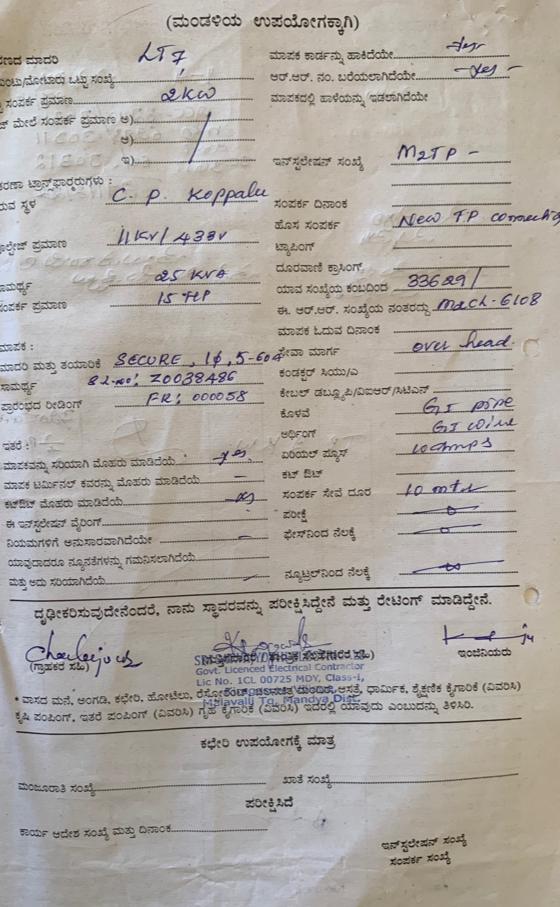 (ಮಂಡಳಿಯ ಉಪಯೋಗಕ್ಕಾಗಿ)
ರಣದ ಮಾದರಿ LT7
ಮಾಪಕ ಕಾರ್ಡನ್ನು ಹಾಕಿದೆಯೇ yes
ಒಟ್ಟು ಸಂಖ್ಯೆ
ಆರ್.ಆರ್. ನಂ. ಬರೆಯಲಾಗಿದೆಯೇ yes -
ಸಂಪರ್ಕ ಪ್ರಮಾಣ 2KW
ಮಾಪಕದಲ್ಲಿ ಹಾಳೆಯನ್ನು ಇಡಲಾಗಿದೆಯೇ
ಮೇಲೆ ಸಂಪರ್ಕ ಪ್ರಮಾಣ ಅ)
ಆ)
ಇ)
ಇನ್‌ಸ್ಟಲೇಷನ್ ಸಂಖ್ಯೆ M2TP -
ಸ್ಥಳ C. P. Koppalu
ಸಂಪರ್ಕ ದಿನಾಂಕ
ಹೊಸ ಸಂಪರ್ಕ New TP connection
ಪ್ರಮಾಣ 11KV/433V
ಟ್ಯಾಪಿಂಗ್
ದೂರವಾಣಿ ಕ್ರಾಸಿಂಗ್
ಸಾಮರ್ಥ್ಯ 25 KVA
ಯಾವ ಸಂಖ್ಯೆಯ ಕಂಬದಿಂದ 33629/
ಸಂಪರ್ಕ ಪ್ರಮಾಣ 15 HP
ಈ. ಆರ್.ಆರ್. ಸಂಖ್ಯೆಯ ನಂತರದ್ದು Mach-6108
ಮಾಪಕ ಓದುವ ದಿನಾಂಕ
ಮಾಪಕ :
ಮಾದರಿ ಮತ್ತು ತಯಾರಿಕೆ SECURE, 1φ, 5-60A
ಸೇವಾ ಮಾರ್ಗ over head.
ಸಾಮರ್ಥ್ಯ Z0038486
ಕಂಡಕ್ಟರ್ ಸಿಯು/ಎ
ಪ್ರಾರಂಭದ ರೀಡಿಂಗ್ FR: 000058
ಕೇಬಲ್ ಡಬ್ಲ್ಯೂಪಿ/ವಿಐಆರ್/ಸಿಟಿಎಸ್
ಕೊಳವೆ GI pipe
ಇತರೆ :
ಅರ್ಥಿಂಗ್ GI wire
ಮಾಪಕವನ್ನು ಸರಿಯಾಗಿ ಮೊಹರು ಮಾಡಿದೆಯೆ yes
ಏರಿಯಲ್ ಫ್ಯೂಸ್ 10 amps
ಮಾಪಕ ಟರ್ಮಿನಲ್ ಕವರನ್ನು ಮೊಹರು ಮಾಡಿದೆಯೆ -
ಕಟ್ ಔಟ್
ಕಟ್‌ಔಟ್ ಮೊಹರು ಮಾಡಿದೆಯೆ yes
ಸಂಪರ್ಕ ಸೇವೆ ದೂರ 10 mtr
ಈ ಇನ್‌ಸ್ಟಲೇಷನ್ ವೈರಿಂಗ್
ಪರೀಕ್ಷೆ
ನಿಯಮಗಳಿಗೆ ಅನುಸಾರವಾಗಿದೆಯೇ -
ಫೇಸ್‌ನಿಂದ ನೆಲಕ್ಕೆ
ಯಾವುದಾದರೂ ನ್ಯೂನತೆಗಳನ್ನು ಗಮನಿಸಲಾಗಿದೆಯೆ
ಮತ್ತು ಅದು ಸರಿಯಾಗಿದೆಯೆ
ನ್ಯೂಟ್ರಲ್‌ನಿಂದ ನೆಲಕ್ಕೆ
ದೃಢೀಕರಿಸುವುದೇನೆಂದರೆ, ನಾನು ಸ್ಥಾವರವನ್ನು ಪರೀಕ್ಷಿಸಿದ್ದೇನೆ ಮತ್ತು ರೇಟಿಂಗ್ ಮಾಡಿದ್ದೇನೆ.
(ಗ್ರಾಹಕರ ಸಹಿ)
ಇಂಜಿನಿಯರು
Govt. Licenced Electrical Contractor
Lic No. 1CL 00725 MDY, Class-I,
Malavalli Tq. Mandya Dist.
* ವಾಸದ ಮನೆ, ಅಂಗಡಿ, ಕಛೇರಿ, ಹೋಟೆಲು, ಧಾರ್ಮಿಕ, ಶೈಕ್ಷಣಿಕ ಕೈಗಾರಿಕೆ (ವಿವರಿಸಿ)
ಕೃಷಿ ಪಂಪಿಂಗ್, ಇತರೆ ಪಂಪಿಂಗ್ (ವಿವರಿಸಿ) ಗೃಹ ಕೈಗಾರಿಕೆ (ವಿವರಿಸಿ) ಇದರಲ್ಲಿ ಯಾವುದು ಎಂಬುದನ್ನು ತಿಳಿಸಿರಿ.
ಕಛೇರಿ ಉಪಯೋಗಕ್ಕೆ ಮಾತ್ರ
ಮಂಜೂರಾತಿ ಸಂಖ್ಯೆ
ಖಾತೆ ಸಂಖ್ಯೆ
ಪರೀಕ್ಷಿಸಿದೆ
ಕಾರ್ಯ ಆದೇಶ ಸಂಖ್ಯೆ ಮತ್ತು ದಿನಾಂಕ
ಇನ್‌ಸ್ಟಲೇಷನ್ ಸಂಖ್ಯೆ
ಸಂಪರ್ಕ ಸಂಖ್ಯೆ